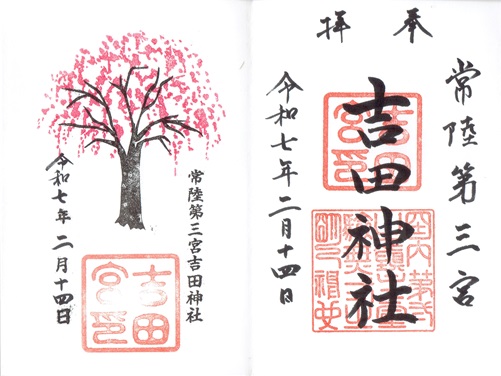 奉拝
常陸第三宮
吉田神社
令和七年二月十四日
吉田宮印
常陸第三宮吉田神社
令和七年二月十四日
吉田宮印